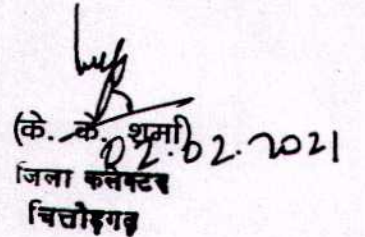 (के. के. शर्मा)
02.02.2021
जिला कलेक्टर
चित्तौड़गढ़